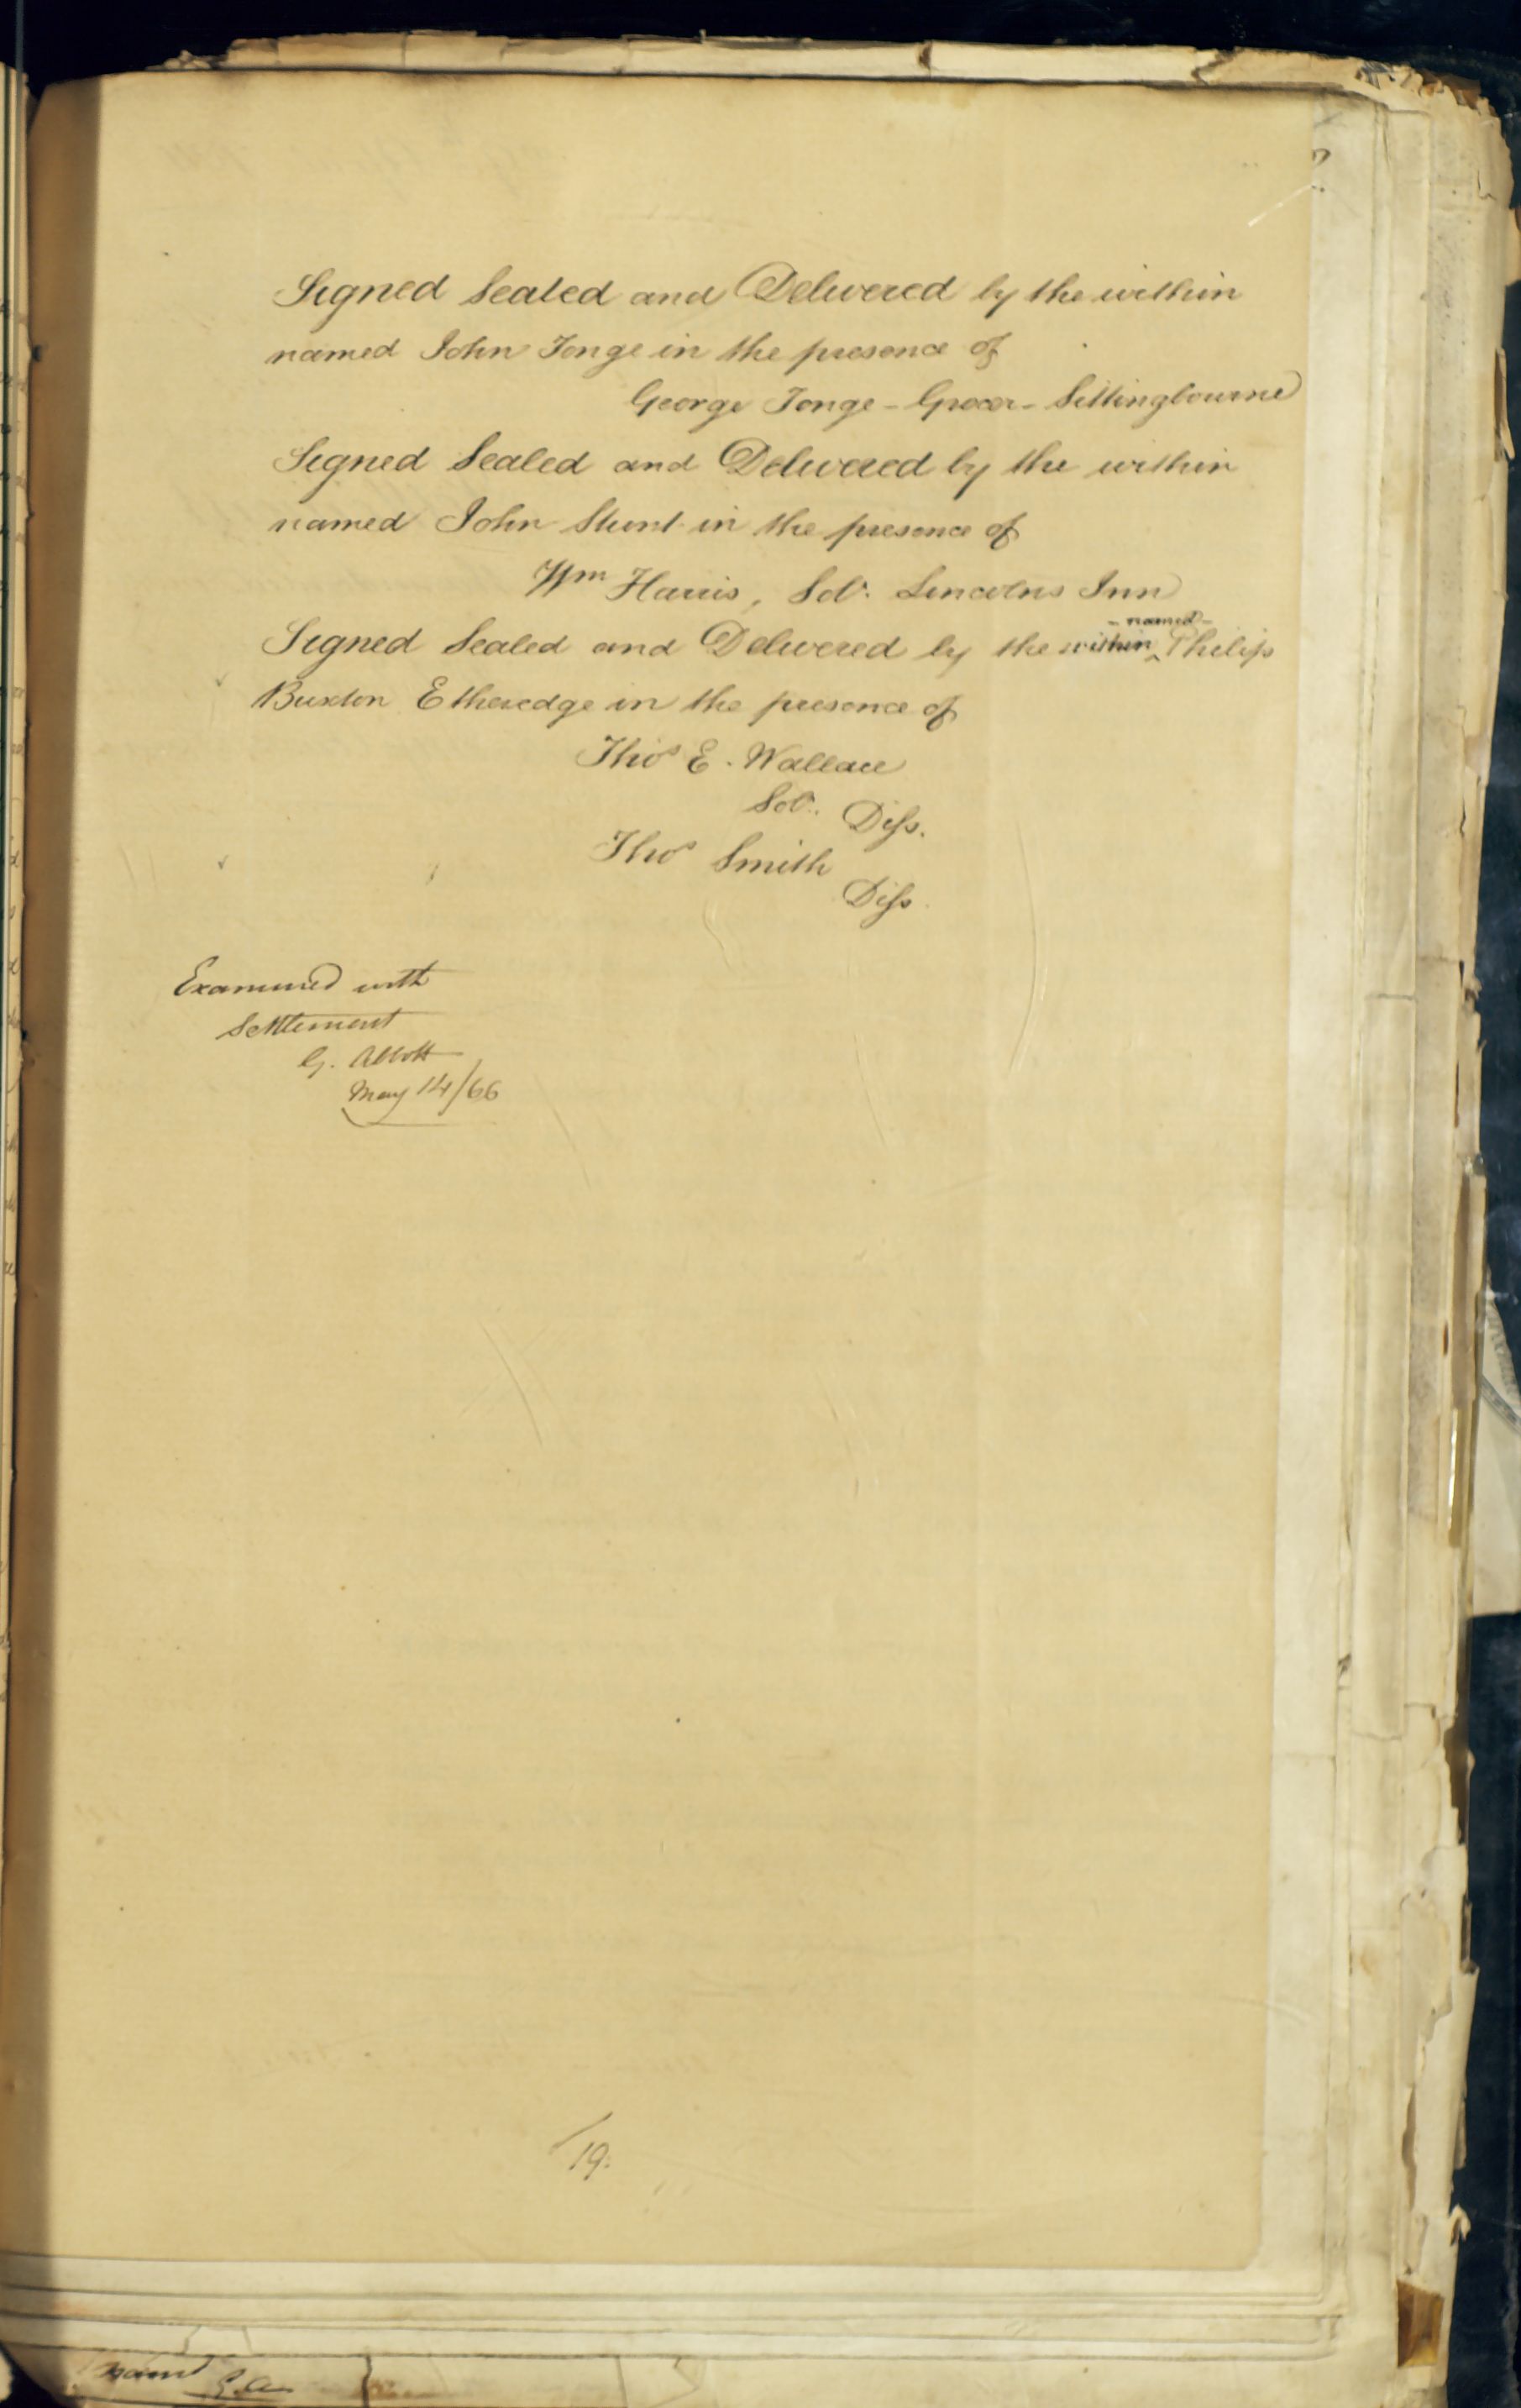 Signed Sealed and Delivered by the within
named John Tonge in the presence of
George Tonge - Grocer - Sittingbourne
Signed Sealed and Delivered by the within
named John Stunt in the presence of
Wm Harris, Solr. Lincolns Inn
- named -
Signed Sealed and Delivered by the within ^ Philip
Buxton Etheredge in the presence of
Thos E. Wallace
Solr. Diss.
Thos Smith
Diss.
Examined with
Settlement
G. Abbott
May 14/66
19.
G.A.